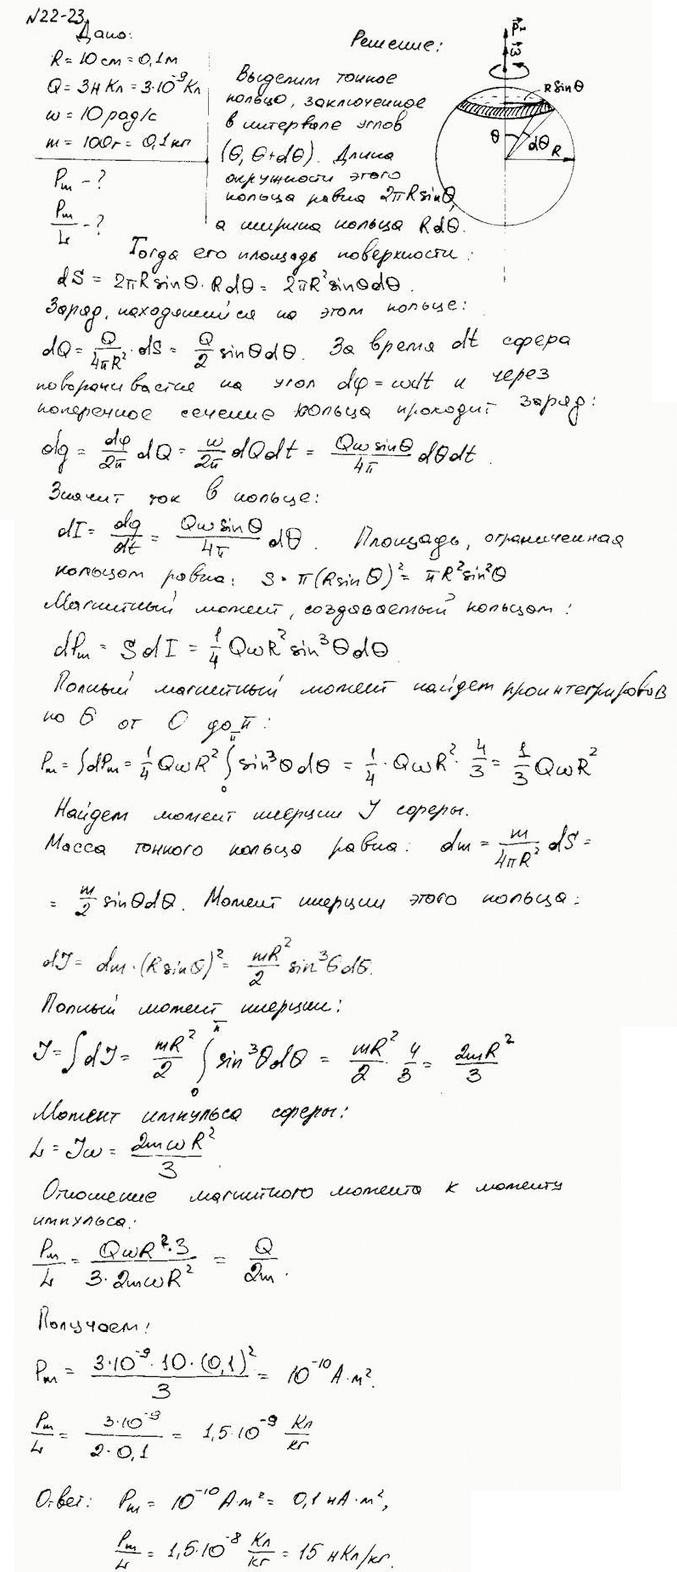 №22-23.
Дано:
R = 10 см = 0,1 м
Q = 3 н Кл = 3·10⁻⁹ Кл
ω = 10 рад/с
m = 100 г = 0,1 кг
Pₘ - ?
Pₘ/L - ?
Решение:
Выделим тонкое
кольцо, заключенное
в интервале углов
(θ, θ+dθ). Длина
окружности этого
кольца равна 2πR sinθ,
а ширина кольца Rdθ.
P⃗ₘ
ω⃗
R sinθ
θ
dθ
R
Тогда его площадь поверхности:
dS = 2πR sinθ · Rdθ = 2πR² sinθdθ.
Заряд, находящийся на этом кольце:
dQ = Q/4πR² · dS = Q/2 sinθdθ. За время dt сфера
поворачивается на угол dφ = ωdt и через
поперечное сечение кольца проходит заряд:
dq = dφ/2π dQ = ω/2π dQdt = Qω sinθ/4π dθdt.
Значит ток в кольце:
dI = dq/dt = Qω sinθ/4π dθ. Площадь, ограниченная
кольцом равна: S = π(R sinθ)² = πR² sin²θ
Магнитный момент, создаваемый кольцом:
dPₘ = S dI = 1/4 QωR² sin³θdθ
Полный магнитный момент найдем проинтегрировав
по θ от 0 до π:
Pₘ = ∫dPₘ = 1/4 QωR² ∫₀^π sin³θdθ = 1/4 · QωR² · 4/3 = 1/3 QωR²
Найдем момент инерции J сферы.
Масса тонкого кольца равна: dm = m/4πR² dS =
= m/2 sinθdθ. Момент инерции этого кольца:
dJ = dm·(R sinθ)² = mR²/2 sin³θdθ.
Полный момент инерции:
J = ∫dJ = mR²/2 ∫₀^π sin³θdθ = mR²/2 · 4/3 = 2mR²/3
Момент импульса сферы:
L = Jω = 2mωR²/3
Отношение магнитного момента к моменту
импульса:
Pₘ/L = QωR²·3/3·2mωR² = Q/2m.
Получаем:
Pₘ = 3·10⁻⁹·10·(0,1)²/3 = 10⁻¹⁰ А·м².
Pₘ/L = 3·10⁻⁹/2·0,1 = 1,5·10⁻⁹ Кл/кг
Ответ: Pₘ = 10⁻¹⁰ А·м² = 0,1 нА·м²,
Pₘ/L = 1,5·10⁻⁸ Кл/кг = 15 нКл/кг.